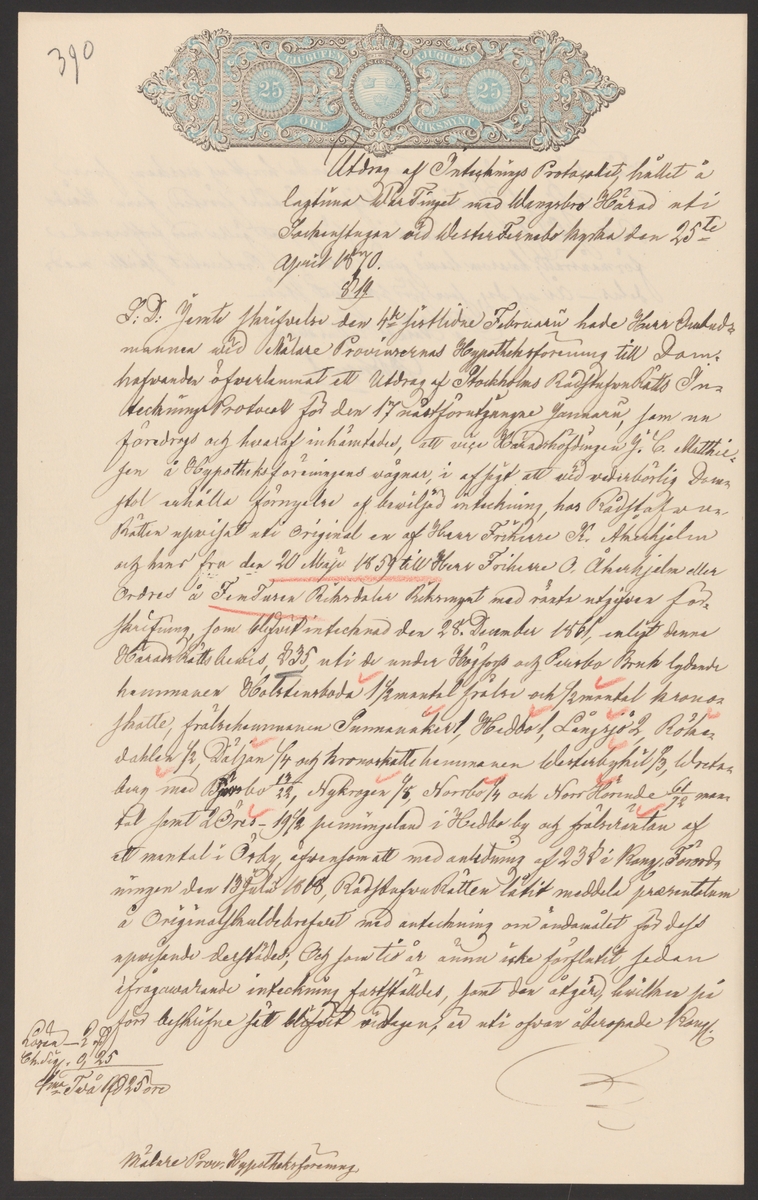 390
TJUGUFEM TJUGUFEM
25 25
ÖRE RIKSMYNT
Utdrag af Intecknings Protocollet, hållet å
lagtima WårTinget med Wangsbro Härad uti
Sockenstugan vid WesterFernebo kyrka den 25te
April 1870.
§ 19
S: D: Jemte skrifvelse den 4de sistlidne Februarii hade Herr Ombuds-
mannen vid Mälare Provinsernas Hypotheksförening till Dom-
hafvanden öfverlemnat ett Utdrag af Stockholms RådstufvuRätts In-
tecknings Protocoll för den 17 nästförutgångne Januarii, som nu
föredrogs och hvaraf inhämtades, att vice Häradshöfdingen J. C. Matthie-
sen å Hypotheksföreningens vägnar, i afsigt att vid vederbörlig Dom-
stol erhålla förnyelse af beviljad inteckning, hos Rådstufvu
Rätten uppvisat uti Original en af Herr Friherre K. Åkerhjelm
och hans fru den 20 Maji 1859 till Herr Friherre O. Åkerhjelm eller
Ordres å TioTusen Riksdaler Riksmynt med ränta utgifven för-
skrifning, som blifvit intecknad den 28 December 1861, enligt denne
HäradsRätts bevis, § 35, uti de under Högfors och Persbo Bruk lydande
hemmanen Holstensboda 1 1/2 mantal frälse och 1/2 mantal krono-
skatte, frälsehemmanen 1, Hedbo 1, Långsjö 2,
dahlen 1/2, 1/4 och kronoskattehemmanen Westerbyhit 1/3, Wreta-
berg med Persbo, Nykrogen 1/8, Norrbo 1/4 och Norr Hörende man-
tal samt 2 Öres 19 1/2 penningeland i Hedbo by och frälseräntan af
ett mantal i Orby, äfvensom att med anledning af 23 § i Kongl. Förord-
ningen den 13 Julii 1818, RådstufvuRätten låtit meddela præsentatum
å Originalskuldebrefvet med anteckning om ändamålet för dess
uppvisande derstädes; Och som tio år ännu icke förflutit, sedan
ifrågavarande inteckning fastställdes, samt den åtgärd, hvilken på
förr beskrifne sätt blifvit vidtagen, är uti ofvan åberopade Kongl.
Lösen — 2
Ch. Sig. 0, 25
Två 25 öre
Mälare Prov. Hypotheksförening